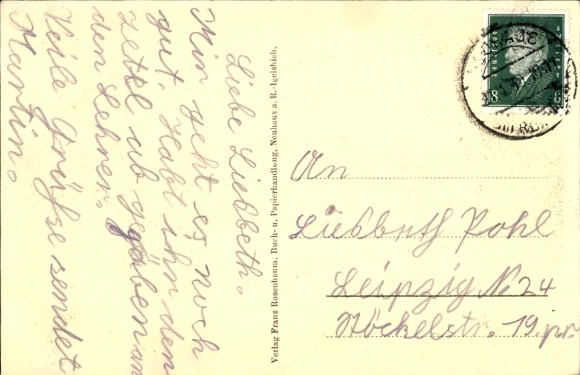 Liebe Liesbeth.
Mir geht es noch
gut. Habt ihr den
zettel ub gegeben an
den Lehrer.
Viele Grüße sendet
Martin.
Verlag Franz Rosenbaum, Buch- u. Papierhandlung, Neuhaus a. R.-Igelshieb.
8
An
Liesbeth Pohl
Leipzig N. 24
Stöckelstr. 19. pr.